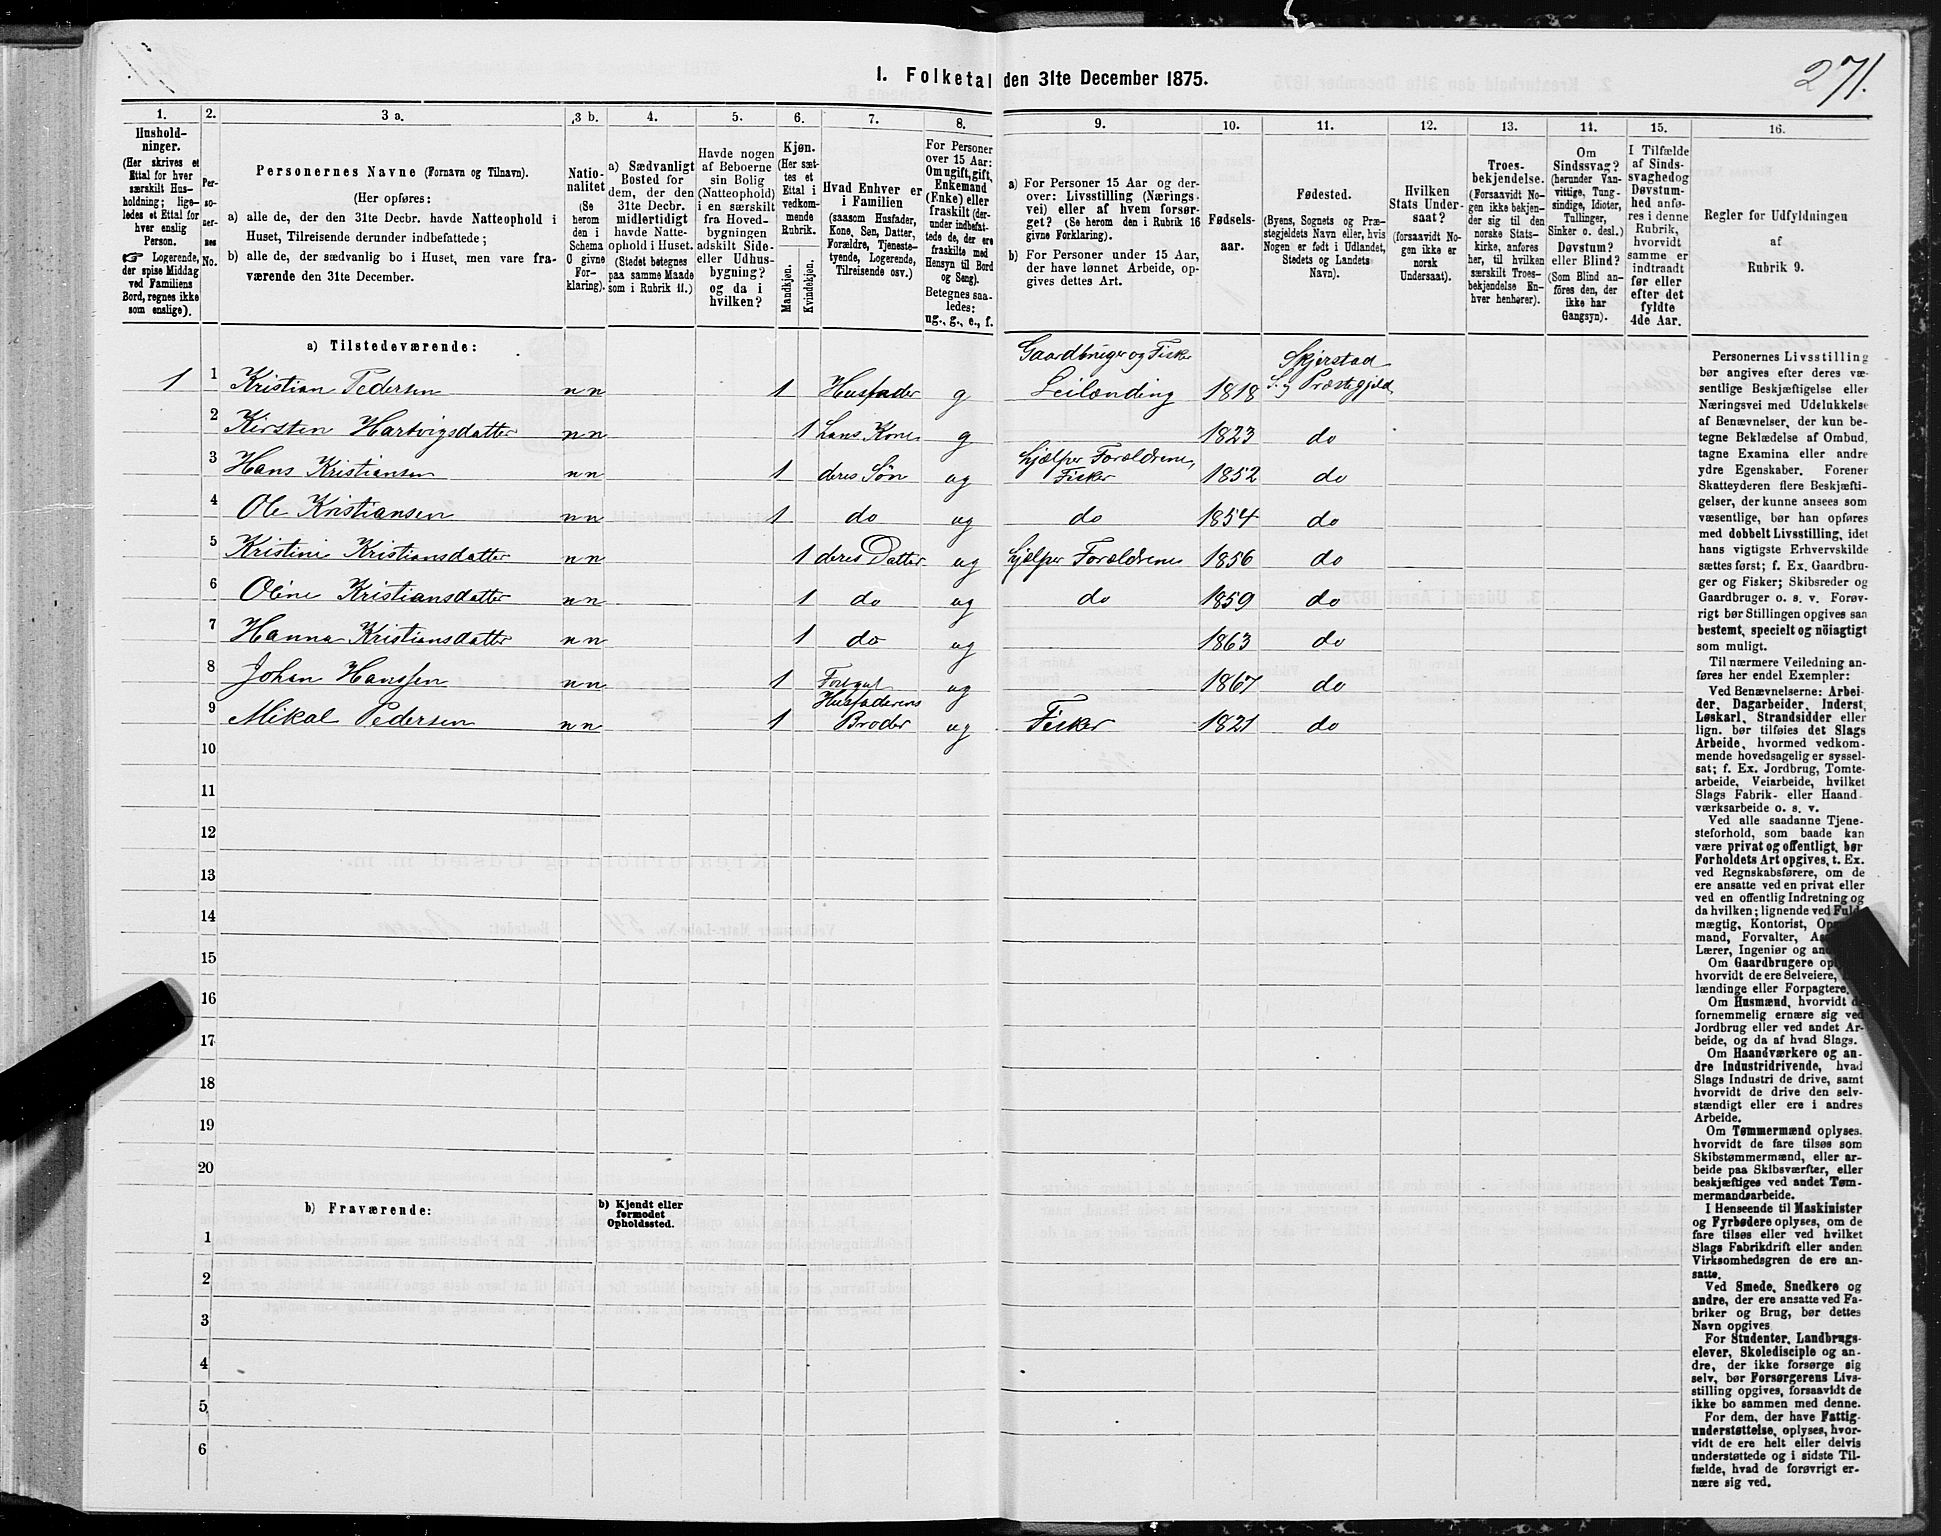 271.
1. Folketal den 31te December 1875.
1.
Hushold-
ninger.
(Her skrives et
Ettal for hver
særskilt Hus-
holdning; lige-
ledes et Ettal for
hver enslig
Person.
Logerende,
der spise Middag
ved Familiens
Bord, regnes ikke
som enslige).
2.
Per-
so-
ner-
nes
No.
3 a.
Personernes Navne (Fornavn og Tilnavn).
(Her opføres:
a) alle de, der den 31te Decbr. havde Natteophold i
Huset, Tilreisende derunder indbefattede;
b) alle de, der sædvanlig bo i Huset, men vare fra-
værende den 31te December.
3 b.
Natio-
nalitet
(Se
herom
den i
Schema
O givne
For-
klaring).
4.
a) Sædvanligt
Bosted for
dem, der den
31te Decbr.
midlertidigt
havde Natte-
ophold i Huset.
(Stedet betegnes
paa samme Maade
som i Rubrik 11.)
5.
Havde nogen
af Beboerne
sin Bolig
(Natteophold)
i en særskilt
fra Hoved-
bygningen
adskilt Side-
eller Udhus-
bygning?
og da i
hvilken?
6.
Kjøn.
(Her sæt-
tes et
Ettal i
vedkom-
mende
Rubrik.
Mandkjøn.
Kvindekjøn.
7.
Hvad Enhver er
i Familien
(saasom Husfader,
Kone, Søn, Datter,
Forældre, Tjeneste-
tyende, Logerende,
Tilreisende osv.)
8.
For Personer
over 15 Aar:
Om ugift, gift,
Enkemand
(Enke) eller
fraskilt (der-
under indbefat-
tede de, der ere
fraskilte med
Hensyn til Bord
og Seng).
Betegnes saa-
ledes:
ug., g., e., f.
9.
a) For Personer 15 Aar og der-
over: Livsstilling (Nærings-
vei) eller af hvem forsør-
get? (Se herom den i Rubrik 16
givne Forklaring).
b) For Personer under 15 Aar,
der have lønnet Arbeide, op-
gives dettes Art.
10.
Fødsels-
aar.
11.
Fødested.
(Byens, Sognets og Præ-
stegjeldets Navn eller, hvis
Nogen er født i Udlandet,
Stedets og Landets
Navn).
12.
Hvilken
Stats Under-
saat?
(forsaavidt No-
gen ikke er
norsk
Undersaat).
13.
Troes-
bekjendelse.
(Forsaavidt No-
gen ikke bekjen-
der sig til den
norske Stats-
kirke, anføres
her, til hvilken
særskilt Troes-
bekjendelse En-
hver henhører).
14.
Om
Sindssvag?
(herunder Van-
vittige, Tung-
sindige, Idioter,
Tullinger,
Sinker o. desl.)
Døvstum?
eller Blind?
(Som Blind an-
föres den, der
ikke har
Gangsyn).
15.
I Tilfælde
af Sinds-
svaghed og
Døvstum-
hed anfø-
res i denne
Rubrik,
hvorvidt
samme er
indtraadt
før eller
efter det
fyldte
4de Aar.
16.
Regler for Udfyldningen
af
Rubrik 9.
a) Tilstedeværende:
1 1 Kristian Pedersen n n 1 Husfader g Gaardbruger og Fisker Leilænding 1818 Skjerstad S. og Præstegjeld
2 Kirsten Hartvigsdatter n n 1 hans Kone g 1823 do
3 Hans Kristiansen n n 1 deres Søn ug hjælper Forældrene, Fisker 1852 do
4 Ole Kristiansen n n 1 do ug do 1854 do
5 Kristine Kristiansdatter n n 1 deres Datter ug hjælper Forældrene 1856 do
6 Oline Kristiansdatter n n 1 do ug do 1859 do
7 Hanna Kristiansdatter n n 1 do ug 1863 do
8 Johan Hanssen n n 1 ug 1867 do
9 Mikal Pedersen n n 1 Husfaderens Broder ug Fisker 1821 do
10
11
12
13
14
15
16
17
18
19
20
b) Fraværende:
b) Kjendt eller
formodet
Opholdssted.
1
2
3
4
5
6
Personernes Livsstilling
bør angives efter deres væ-
sentlige Beskjæftigelse eller
Næringsvei med Udelukkelse
af Benævnelser, der kun be-
tegne Beklædelse af Ombud,
tagne Examina eller andre
ydre Egenskaber. Forener
Skatteyderen flere Beskjæfti-
gelser, der kunne ansees som
væsentlige, bør han opføres
med dobbelt Livsstilling, idet
hans vigtigste Erhvervskilde
sættes først; f. Ex. Gaardbru-
ger og Fisker; Skibsreder og
Gaardbruger o. s. v. Forøv-
rigt bør Stillingen opgives saa
bestemt, specielt og nöiagtigt
som muligt.
Til nærmere Veiledning an-
føres her endel Exempler:
Ved Benævnelserne: Arbei-
der, Dagarbeider, Inderst,
Løskarl, Strandsidder eller
lign. bør tilføies det Slags
Arbeide, hvormed vedkom-
mende hovedsagelig er syssel-
sat; f. Ex. Jordbrug, Tomte-
arbeide, Veiarbeide, hvilket
Slags Fabrik- eller Haand-
værksarbeide o. s. v.
Ved alle saadanne Tjene-
steforhold, som baade kan
være privat og offentligt, bør
Forholdets Art opgives, t. Ex.
ved Regnskabsførere, om de
ere ansatte ved en privat eller
ved en offentlig Indretning og
da hvilken; lignende ved Fuld-
mægtig, Kontorist,
mand, Forvalter,
Lærer, Ingeniør og
Om Gaardbrugere
hvorvidt de ere Selveiere,
lændinge eller Forpagtere.
Om Husmænd, hvorvidt
fornemmelig ernære sig ved
Jordbrug eller ved andet Ar-
beide, og da af hvad Slags.
Om Haandværkere og an-
dre Industridrivende, hvad
Slags Industri de drive, samt
hvorvidt de drive den selv-
stændigt eller ere i andres
Arbeide.
Om Tømmermænd oplyses,
hvorvidt de fare tilsøs som
Skibstømmermænd, eller ar-
beide paa Skibsværfter, eller
beskjæftiges ved andet Tøm-
mermandsarbeide.
I Henseende til Maskinister
og Fyrbødere oplyses, om de
fare tilsøs eller ved hvilket
Slags Fabrikdrift eller anden
Virksomhedsgren de ere an-
satte.
Ved Smede, Snedkere og
andre, der ere ansatte ved Fa-
briker og Brug, bør dettes
Navn opgives
For Studenter, Landbrugs-
elever, Skoledisciple og an-
dre, der ikke forsørge sig
selv, bør Forsørgerens Livs-
stilling opgives, forsaavidt de
ikke bo sammen med denne.
For dem, der have Fattig-
understøttelse, oplyses, hvor-
vidt de ere helt eller delvis
understøttede og i sidste Til-
fælde, hvad de forøvrigt er-
nære sig ved.